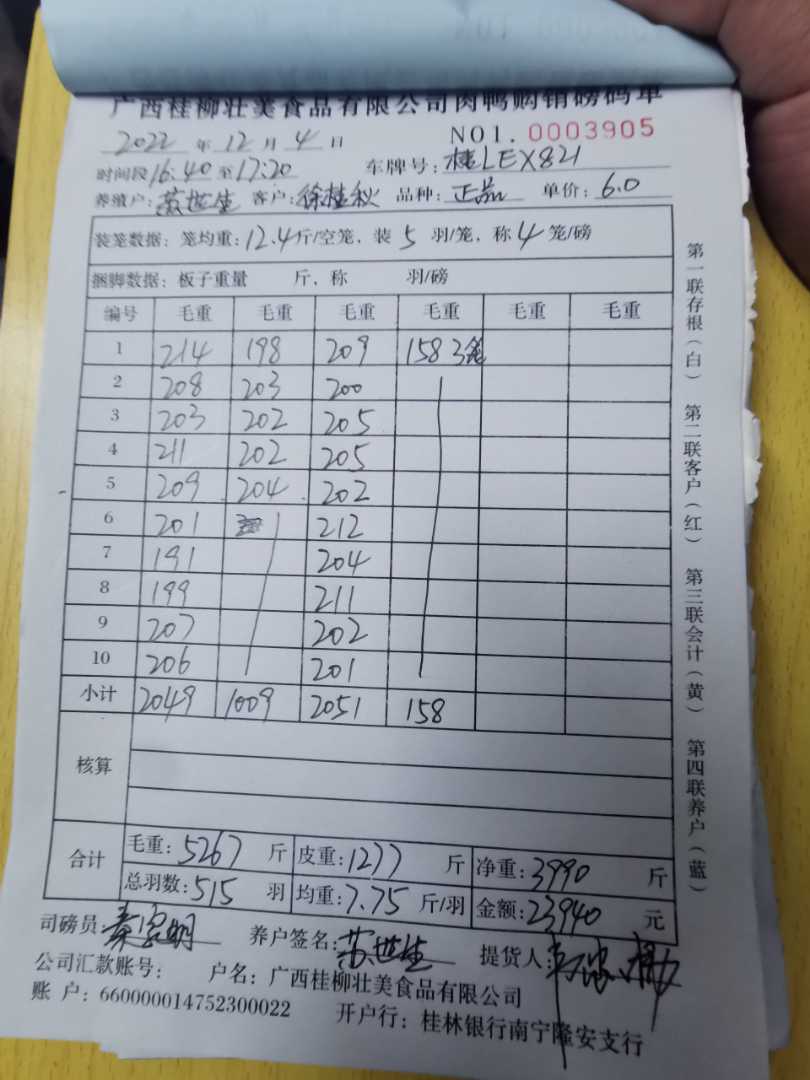 广西桂柳壮美食品有限公司肉鸭购销磅码单
2022 年 12 月 4 日 NO1. 0003905
时间段 16:40 至 17:20 车牌号: 桂LEX821
养殖户: 苏世生 客户: 徐桂秋 品种: 正品 单价: 6.0
装笼数据: 笼均重: 12.4 斤/空笼, 装 5 羽/笼, 称 4 笼/磅
捆脚数据: 板子重量 斤, 称 羽/磅
编号 毛重 毛重 毛重 毛重 毛重 毛重
1 214 198 209 158 3笼
2 208 203 200
3 203 202 205
4 211 202 205
5 209 204 202
6 201 212
7 191 204
8 199 211
9 207 202
10 206 201
小计 2049 1009 2051 158
核算
合计 毛重: 5267 斤 皮重: 1277 斤 净重: 3990 斤
总羽数: 515 羽 均重: 7.75 斤/羽 金额: 23940 元
司磅员: 养户签名: 苏世生 提货人:
公司汇款账号: 户名: 广西桂柳壮美食品有限公司
账 户: 660000014752300022 开户行: 桂林银行南宁隆安支行
第一联存根(白) 第二联客户(红) 第三联会计(黄) 第四联养户(蓝)